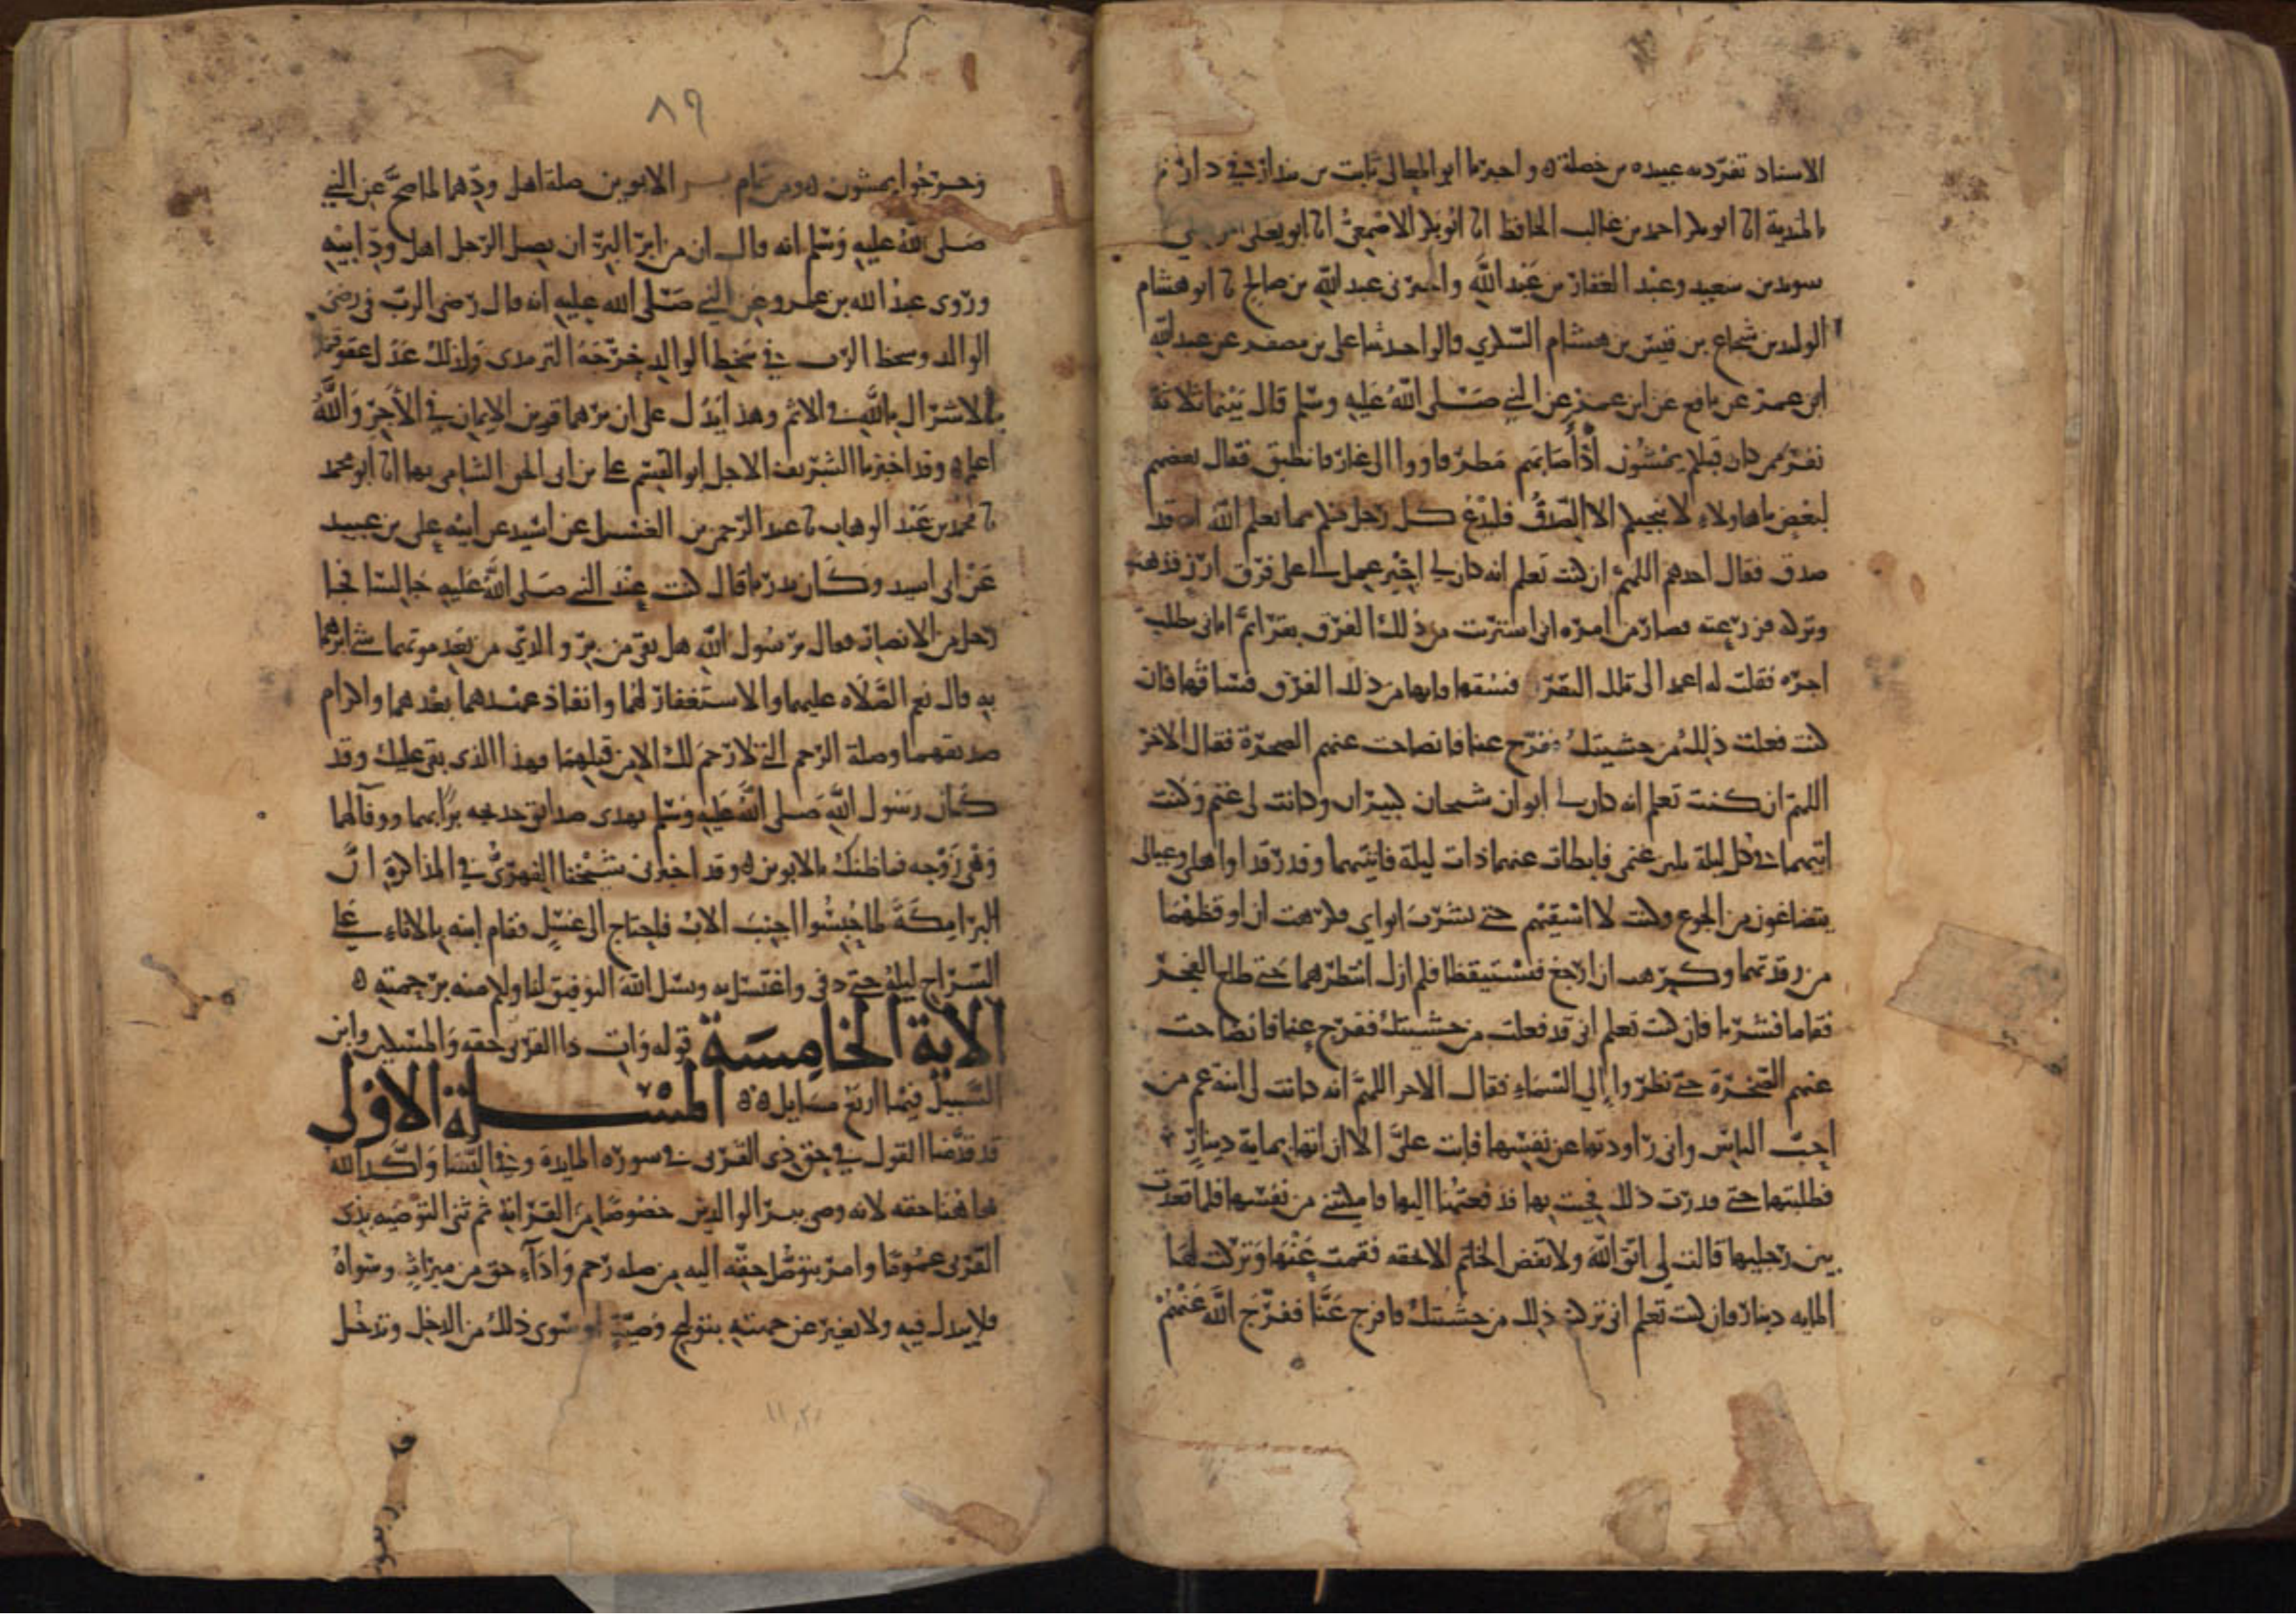 الاسناد تفرد به عبيده من خصلة ه واخبرنا ابو المعالي ثابت بن بندار في داره
بالمدينة انا ابو بكر احمد بن غالب الحافظ انا ابو بكر الاسمعيلي انا ابو يعلى
سويد بن سعيد وعبد الغفار بن عبد الله واخبرني عبد الله بن صالح نا ابو هشام
الوليد بن شجاع بن قيس بن هشام السكري قالوا حدثنا علي بن مسهر عن عبد الله
ابن عمر عن نافع عن ابن عمر عن النبي صلى الله عليه وسلم قال بينما ثلاثة
نفر ممن كان قبلكم يمشون اذ اصابهم مطر فاووا الى غار فانطبق فقال بعضهم
لبعض يا هاولاء لا ينجيكم الا الصدق فليدع كل رجل منكم بما يعلم الله انه قد
صدق فقال احدهم اللهم ان كنت تعلم انه كان لي اجير عمل لي على فرق ارز فذهب
وتركه فزرعته فصار من امره اني اشتريت من ذلك الفرق بقرا ثم اتاني يطلب
اجره فقلت له اعمد الى تلك البقر فسقها فانها من ذلك الفرق فساقها فان
كنت فعلت ذلك من خشيتك ففرج عنا فانصاحت عنهم الصخرة فقال الاخر
اللهم ان كنت تعلم انه كان لي ابوان شيخان كبيران وكانت لي غنم وكنت
اتيهما في كل ليلة بلبن غنمي فابطات عنهما ذات ليلة فاتيتهما وقد رقدا واهلي وعيالي
يتضاغون من الجوع وكنت لا اسقيهم حتى يشرب ابواي فكرهت ان اوقظهما
من رقدتهما وكرهت ان ارجع فيستيقظا فلم ازل انتظرهما حتى طلع الفجر
فقاما فشربا فان كنت تعلم اني قد فعلت من خشيتك ففرج عنا فانصاحت
عنهم الصخرة حتى نظروا الي السماء فقال الاخر اللهم انه كانت لي ابنة عم من
احب الناس واني راودتها عن نفسها فابت عليَّ الا ان اتيها بماية دينار
فطلبتها حتى قدرت ذلك فجيت بها فدفعتها اليها فامكنتني من نفسها فلما قعدت
بين رجليها قالت لي اتق الله ولا تفض الخاتم الا بحقه فقمت عنها وتركت لها
المايه دينار فان كنت تعلم اني تركت ذلك من خشيتك فافرج عنا ففرج الله عنهم
٨٩
فخرجوا يمشون ه ومن تمام بر الابوين صلة اهل ودهما لما صح عن النبي
صلى الله عليه وسلم انه قال ان من ابر البر ان يصل الرجل اهل ود ابيه
وروى عبد الله بن عمرو عن النبي صلى الله عليه انه قال رضى الرب في رضى
الوالد وسخط الرب في سخط الوالد خرجه الترمدى ولذلك عدل عقوقهما
بالاشراك بالله في الاثم وهذا يدل على ان برهما قرين الايمان في الاجر والله
اعلم ه وقد اخبرنا الشريف الاجل ابو القسم علي بن ابى الحسن الشامي بها انا ابو محمد
نا محمد بن عبد الوهاب نا عبد الرحمن بن الغسيل عن اسيد عن ابيه علي بن عبيد
عن ابي اسيد وكان بدريا قال كنت عند النبي صلى الله عليه جالسا فجا
رجل من الانصار فقال يرسول الله هل بقى من بر والدي من بعد موتهما شي ابرهما
به قال نعم الصلاه عليهما والاستغفار لهما وانفاذ عهدهما بعدهما واكرام
صديقهما وصلة الرحم التي لا رحم لك الا من قبلهما فهذا الذى بقى عليك وقد
كان رسول الله صلى الله عليه وسلم يهدى صدايق خديجه برا بهما ووفآ لهما
وهي زوجه فما ظنك بالابوين ه وقد اخبرني شيخنا الفهرى في المذاكرة ان
البرامكة لما حبسوا اجنب الاب فاحتاج الى غسل فقام ابنه بالاناء على
السراج ليله حتى دفى واغتسل به ونسل الله التوفيق لنا ولكم منه برحمته ه
الاية الخامسة قوله وات ذا القربى حقه والمسكين وابن
السبيل فيها اربع مسايل ه ه المسئلة الاولى
قد قدمنا القول في حق ذى القربى في سوره المايدة وفي النسا واكد الله
هاهنا حقه لانه وصى ببر الوالدين خصوصا من القرابة ثم ثنى التوصيه بذى
القربى عموما وامر بتوصل حقه اليه من صله رحم واداء حق من ميراث وسواه
فلا يبدل فيه ولا يغير عن جهته بتوليج وصية او سوى ذلك من الدخل وتدخل